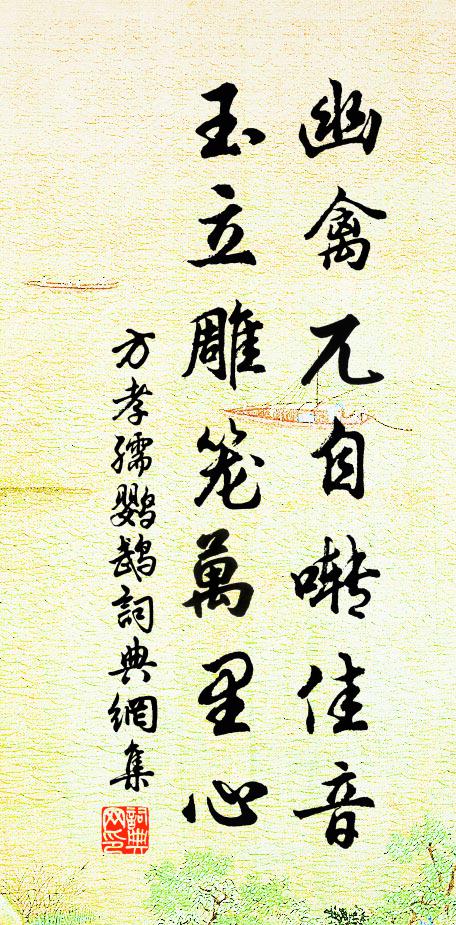 幽禽兀自啭佳音
玉立雕笼萬里心
方孝孺鹦鹉詞典網集
詞典網印